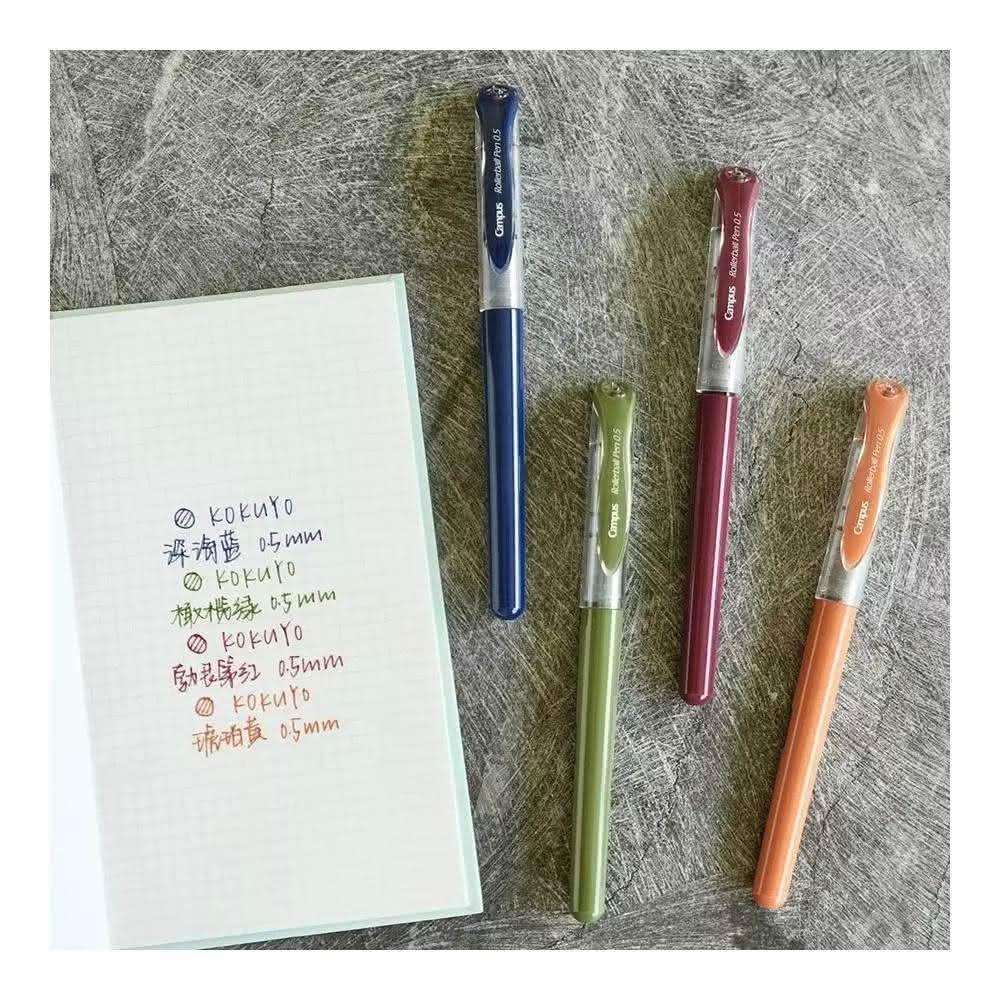 KOKUYO
深海蓝 0.5mm
KOKUYO
橄榄绿 0.5mm
KOKUYO
勃艮第红 0.5mm
KOKUYO
琥珀黄 0.5mm
Campus Rollerball Pen 0.5
Campus Rollerball Pen 0.5
Campus Rollerball Pen 0.5
Campus Rollerball Pen 0.5